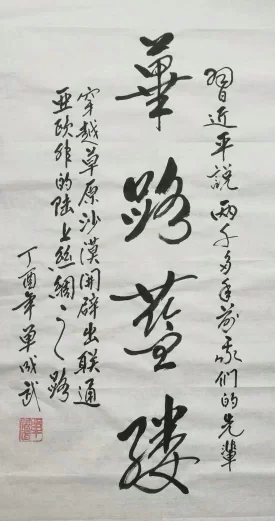 習近平說兩千多年前我們的先輩
篳路藍縷
穿越草原沙漠開辟出聯通
亞歐非的陆上絲綢之路
丁酉年單成武